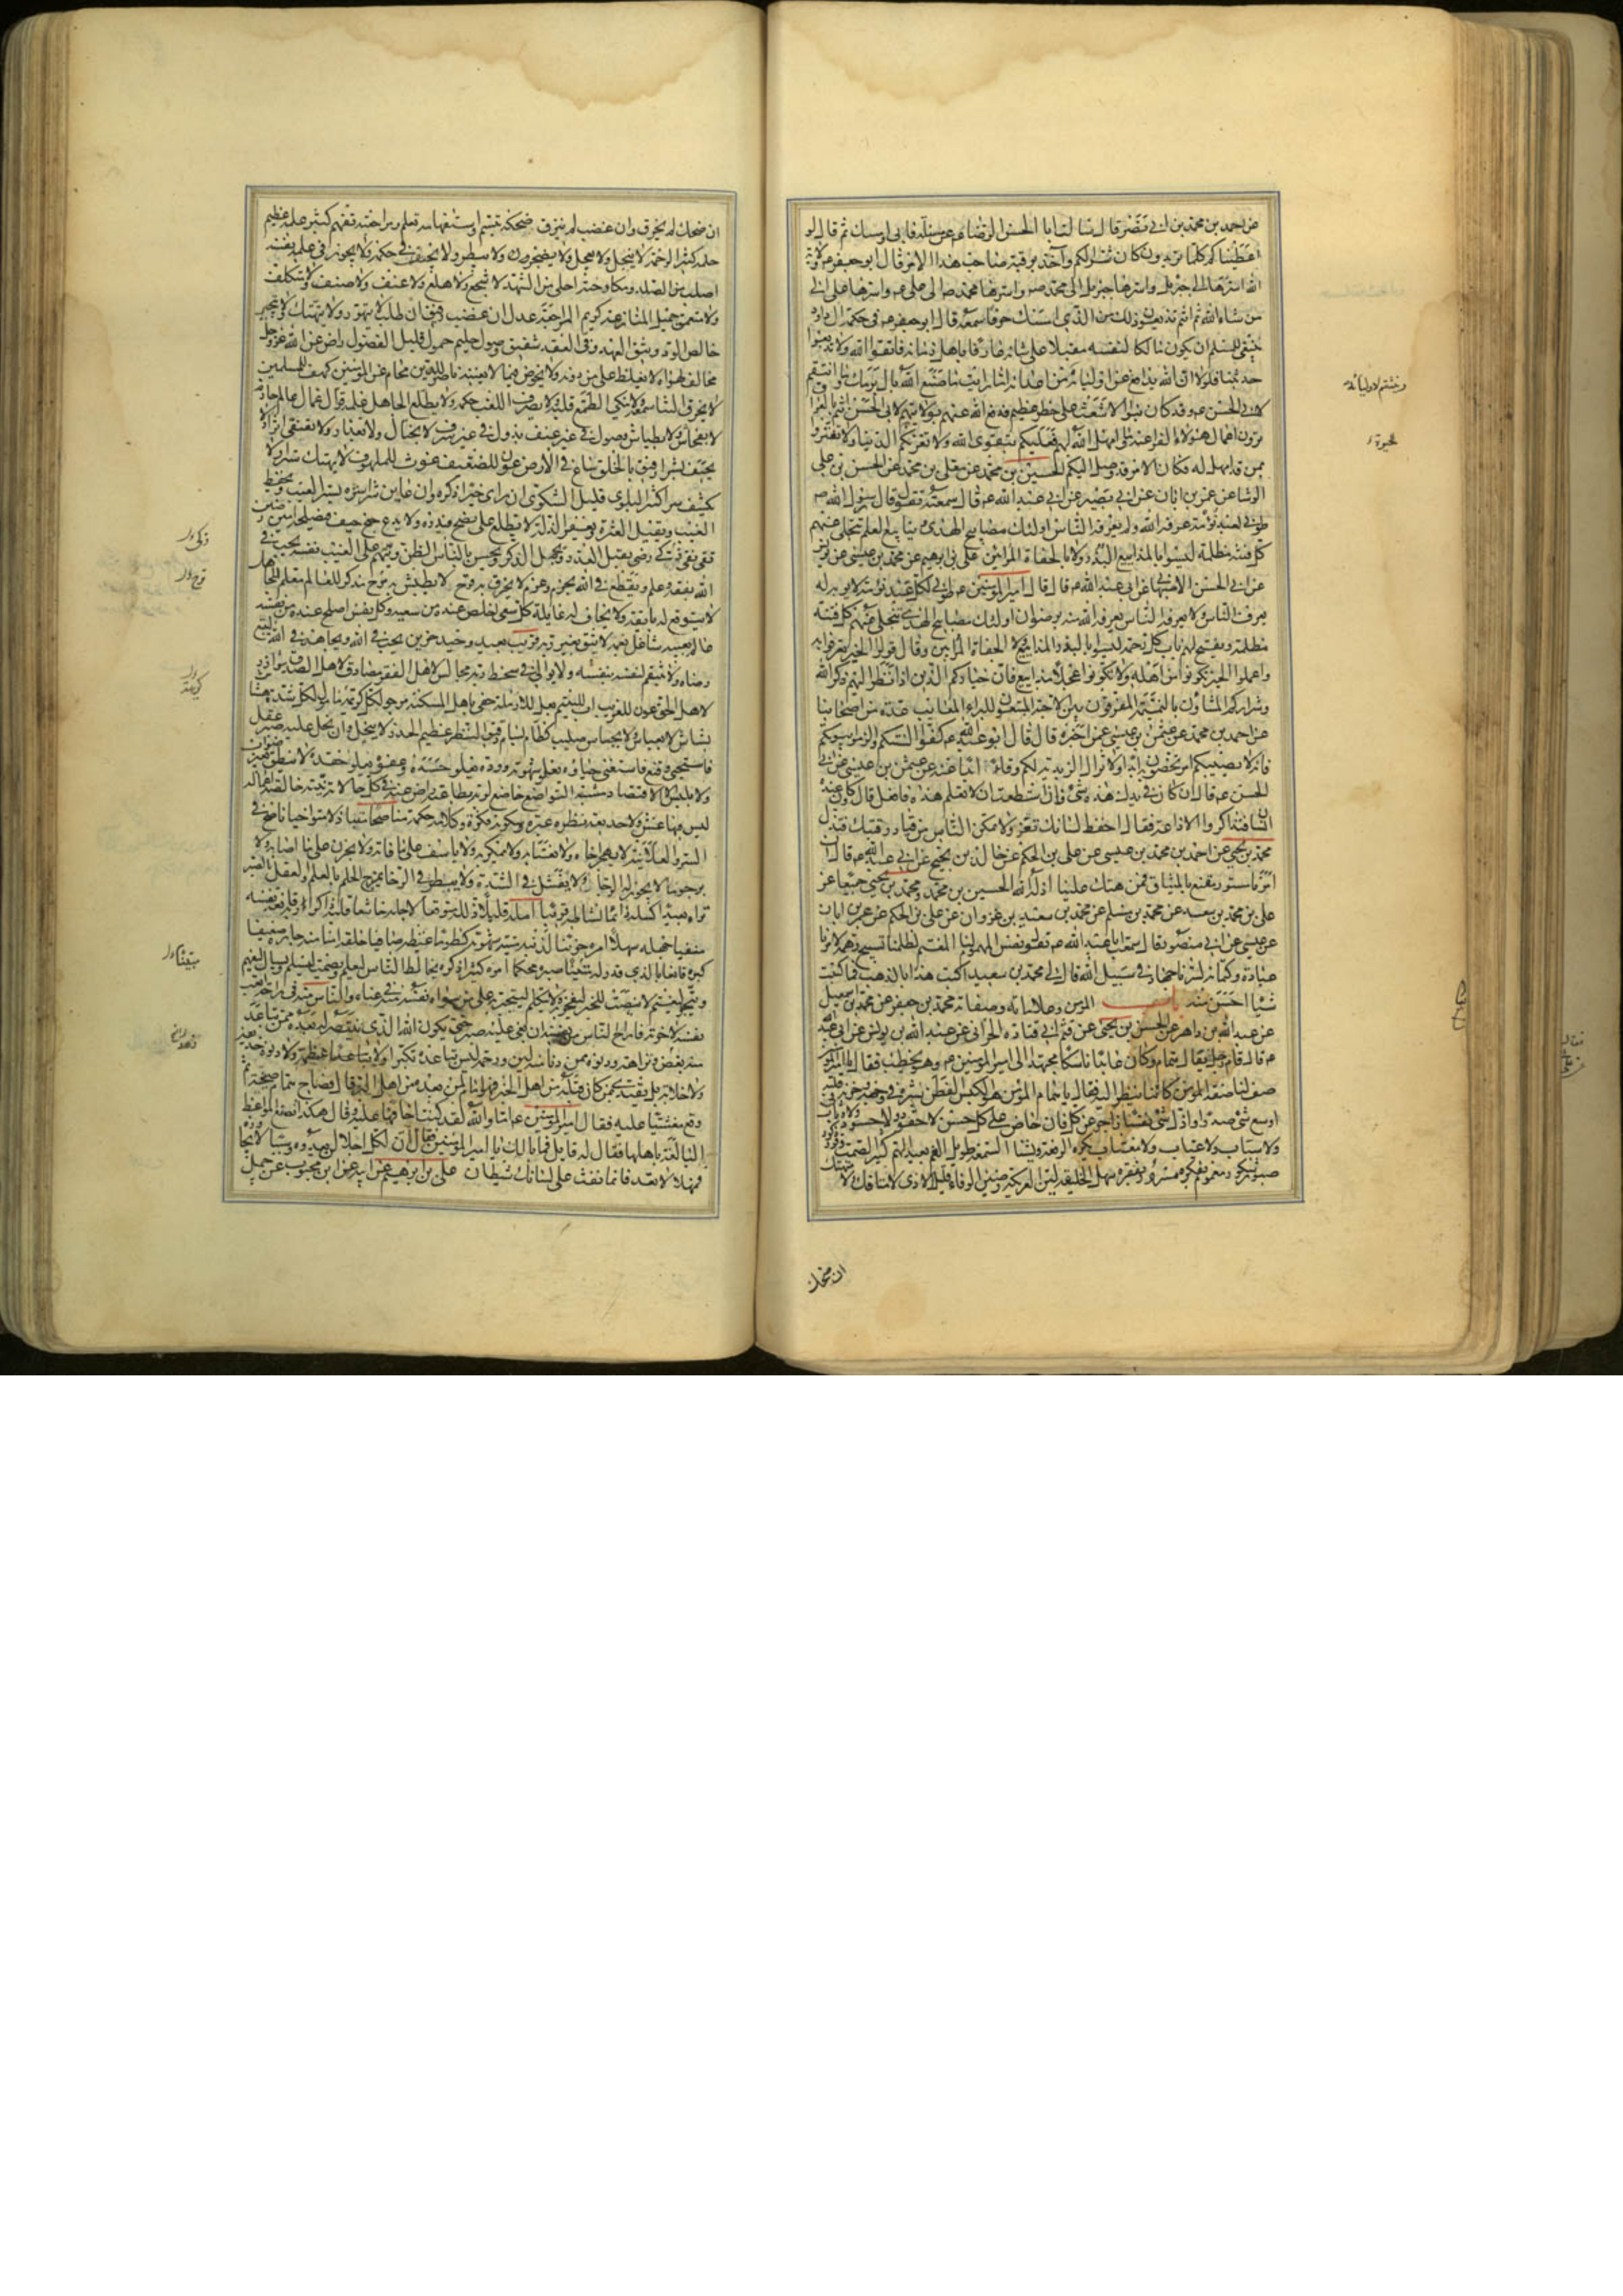 عن احمد بن محمد بن ابي نصر قال سالت ابا الحسن الرضا ع عن مسئلة فابى وامسك ثم قال لو
اعطيناكم كلما تريدون كان شرا لكم واخذ برقبة صاحب هذا الامر قال ابو جعفر ع ولاية
الله اسرها الى جبرئيل واسرها جبرئيل الى محمد ص واسرها محمد ص الى علي ع واسرها علي الى
من شاء الله ثم انتم تذيعون ذلك من الذي امسك حرفا سمعه قال ابو جعفر ع في حكمة ال داود
ينبغي للمسلم ان يكون مالكا لنفسه مقبلا على شانه عارفا باهل زمانه فاتقوا الله ولا تذيعوا
حديثنا فلولا ان الله يدافع عن اوليائه وينتقم لاوليائه من اعدائه اما رايت ما صنع الله بال برمك وما انتقم
لابي الحسن ع وقد كان بنو الاشعث على خطر عظيم فدفع الله عنهم بولايتهم لابي الحسن انتم بالعراق
ترون اعمال هؤلاء الفراعنة وما امهل الله لهم فعليكم بتقوى الله ولا تغرنكم الدنيا ولا تغتروا
بمن قد امهل له فكان الامر قد وصل اليكم الحسين بن محمد عن معلى بن محمد عن الحسن بن علي
الوشا عن عمر بن ابان عن ابي بصير عن ابي عبد الله ع قال سمعته يقول قال رسول الله ص
طوبى لعبد نؤمة عرفه الله ولم يعرفه الناس اولئك مصابيح الهدى وينابيع العلم تنجلي عنهم
كل فتنة مظلمة ليسوا بالمذاييع البذر ولا بالجفاة المرائين علي بن ابرهيم عن محمد بن عيسى عن يونس
عن ابي الحسن الاصبهاني عن ابي عبد الله ع قال قال امير المؤمنين ع طوبى لكل عبد نؤمة لا يوبه له
يعرف الناس ولا يعرفه الناس يعرفه الله منه برضوان اولئك مصابيح الهدى تنجلي عنهم كل فتنة
مظلمة ويفتح لهم باب كل رحمة ليسوا بالبذر المذاييع ولا الجفاة المرائين وقال قولوا الخير تعرفوا به
واعملوا الخير تكونوا من اهله ولا تكونوا عجلا مذاييع فان خياركم الذين اذا نظر اليهم ذكر الله
وشراركم المشاؤن بالنميمة المفرقون بين الاحبة المبتغون للبراء المعايب عدة من اصحابنا
عن احمد بن محمد عن عثمن بن عيسى عمن اخبره قال قال ابو عبد الله ع كفوا السنتكم والزموا بيوتكم
فانه لا يصيبكم امر تخصون به ابدا ولا تزال الزيدية لكم وقاء ابدا عنه عن عثمن بن عيسى عن ابي
الحسن ع قال ان كان في يدك هذه شئ فان استطعت ان لا تعلم هذه فافعل قال وكان عنده
انسان فتذاكروا الاذاعة فقال احفظ لسانك تعز ولا تمكن الناس من قياد رقبتك فتذل
محمد بن يحيى عن احمد بن محمد بن عيسى عن علي بن الحكم عن خالد بن نجيح عن ابي عبد الله ع قال ان
امرنا مستور مقنع بالميثاق فمن هتك علينا اذله الله الحسين بن محمد ومحمد بن يحيى جميعا عن
علي بن محمد بن سعد عن محمد بن مسلم عن محمد بن سعيد بن غزوان عن علي بن الحكم عن عمر بن ابان
عن عيسى عن ابي منصور قال سمعت ابا عبد الله ع يقول نفس المهموم لنا المغتم لظلمنا تسبيح وهمه لامرنا
عبادة وكتمانه لسرنا جهاد في سبيل الله قال لي محمد بن سعيد اكتب هذا بالذهب فما كتبت
شيئا احسن منه باب المؤمن وعلاماته وصفاته محمد بن جعفر عن محمد بن اسمعيل
عن عبد الله بن داهر عن الحسن بن يحيى عن قثم ابي قتادة الحراني عن عبد الله بن يونس عن ابي عبد الله
ع قال قام رجل يقال له همام وكان عابدا ناسكا مجتهدا الى امير المؤمنين ع وهو يخطب فقال يا امير المؤمنين
صف لنا صفة المؤمن كاننا ننظر اليه فقال يا همام المؤمن هو الكيس الفطن بشره في وجهه وحزنه في قلبه
اوسع شئ صدرا واذل شئ نفسا زاجر عن كل فان حاض على كل حسن لا حقود ولا حسود ولا وثاب
ولا سباب ولا عياب ولا مغتاب يكره الرفعة ويشنا السمعة طويل الغم بعيد الهم كثير الصمت وقور ذكور
صبور شكور مغموم بفكره مسرور بفقره سهل الخليقة لين العريكة رصين الوفاء قليل الاذى لا متافك ولا متهتك
ان ضحك
وينتقم لاوليائه
ان ضحك لم يخرق وان غضب لم ينزق ضحكه تبسم واستفهامه تعلم ومراجعته تفهم كثير علمه عظيم
حلمه كثير الرحمة لا يبخل ولا يعجل ولا يضجر ولا يبطر ولا يحيف في حكمه ولا يجور في علمه نفسه
اصلب من الصلد ومكادحته احلى من الشهد لا جشع ولا هلع ولا عنف ولا صلف ولا متكلف
ولا متعمق جميل المنازعة كريم المراجعة عدل ان غضب رفيق ان طلب لا يتهور ولا يتهتك ولا يتجبر
خالص الود وثيق العهد وفي العقد شفيق وصول حليم حمول قليل الفضول راض عن الله عز وجل
مخالف لهواه لا يغلظ على من دونه ولا يخوض فيما لا يعنيه ناصر للدين محام عن المؤمنين كهف للمسلمين
لا يخرق الثنا سمعه ولا ينكي الطمع قلبه ولا يصرف اللعب حكمه ولا يطلع الجاهل علمه قوال عمال عالم حازم
لا بفحاش ولا بطياش وصول في غير عنف بذول في غير سرف لا بختال ولا بغدار ولا يقتفي اثرا ولا
يحيف بشرا رفيق بالخلق ساع في الارض عون للضعيف غوث للملهوف لا يهتك سترا ولا
يكشف سرا كثير البلوى قليل الشكوى ان راى خيرا ذكره وان عاين شرا ستره يستر العيب ويحفظ
الغيب ويقيل العثرة ويغفر الزلة لا يطلع على نصح فيذره ولا يدع جنح حيف فيصلحه امين رصين
تقي نقي زكي رضي يقبل العذر ويجمل الذكر ويحسن بالناس الظن ويتهم على العيب نفسه يحب في
الله بفقه وعلم ويقطع في الله بحزم وعزم لا يخرق به فرح ولا يطيش به مرح مذكر للعالم معلم للجاهل
لا يتوقع له بائقة ولا يخاف له غائلة كل سعي اخلص عنده من سعيه وكل نفس اصلح عنده من نفسه
عالم بعيبه شاغل بغمه لا يثق بغير ربه قريب بعيد وحيد حزين يحب في الله ويجاهد في الله ليتبع
رضاه ولا ينتقم لنفسه بنفسه ولا يوالي في سخط ربه مجالس لاهل الفقر مصادق لاهل الصدق موازر
لاهل الحق عون للغريب اب لليتيم بعل للارملة حفي باهل المسكنة مرجو لكل كريهة مامول لكل شدة هشاش
بشاش لا بعباس ولا بجساس صليب كظام بسام دقيق النظر عظيم الحذر لا يبخل وان بخل عليه صبر عقل
فاستحيى وقنع فاستغنى حياؤه يعلو شهوته ووده يعلو حسده وعفوه يعلو حقده لا ينطق بغير صواب
ولا يلبس الا الاقتصاد مشيه التواضع خاضع لربه بطاعته راض عنه في كل حالاته نيته خالصة اعماله
ليس فيها غش ولا خديعة نظره عبرة وسكوته فكرة وكلامه حكمة مناصحا متباذلا متواخيا ناصح في
السر والعلانية لا يهجر اخاه ولا يغتابه ولا يمكر به ولا ياسف على ما فاته ولا يحزن على ما اصابه ولا
يرجو ما لا يجوز له الرجاء ولا يفشل في الشدة ولا يبطر في الرخاء يمزج الحلم بالعلم والعقل بالصبر
تراه بعيدا كسله دائما نشاطه قريبا امله قليلا زلله متوقعا لاجله خاشعا قلبه ذاكرا ربه قانعة نفسه
منفيا جهله سهلا امره حزينا لذنبه ميتة شهوته كظوما غيظه صافيا خلقه امنا منه جاره ضعيفا
كبره قانعا بالذي قدر له متينا صبره محكما امره كثيرا ذكره يخالط الناس ليعلم ويصمت ليسلم ويسال ليفهم
ويتجر ليغنم لا ينصت للخير ليفجر به ولا يتكلم ليتجبر به على من سواه نفسه منه في عناء والناس منه في راحة اتعب
نفسه لاخرته فاراح الناس من نفسه ان بغي عليه صبر حتى يكون الله الذي ينتصر له بعده ممن تباعد
منه بغض ونزاهة ودنوه ممن دنا منه لين ورحمة ليس تباعده تكبرا ولا عظمة ولا دنوه خديعة
ولا خلابة بل يقتدي بمن كان قبله من اهل الخير فهو امام لمن بعده من اهل البر قال فصاح همام صيحة ثم
وقع مغشيا عليه فقال امير المؤمنين ع اما والله لقد كنت اخافها عليه وقال هكذا تصنع المواعظ
البالغة باهلها فقال له قائل فما بالك يا امير المؤمنين فقال ان لكل اجلا لن يعدوه وسببا لا يجاوزه
فمهلا لا تعد فانما نفث على لسانك شيطان علي بن ابرهيم عن ابيه عن ابن محبوب عن جميل